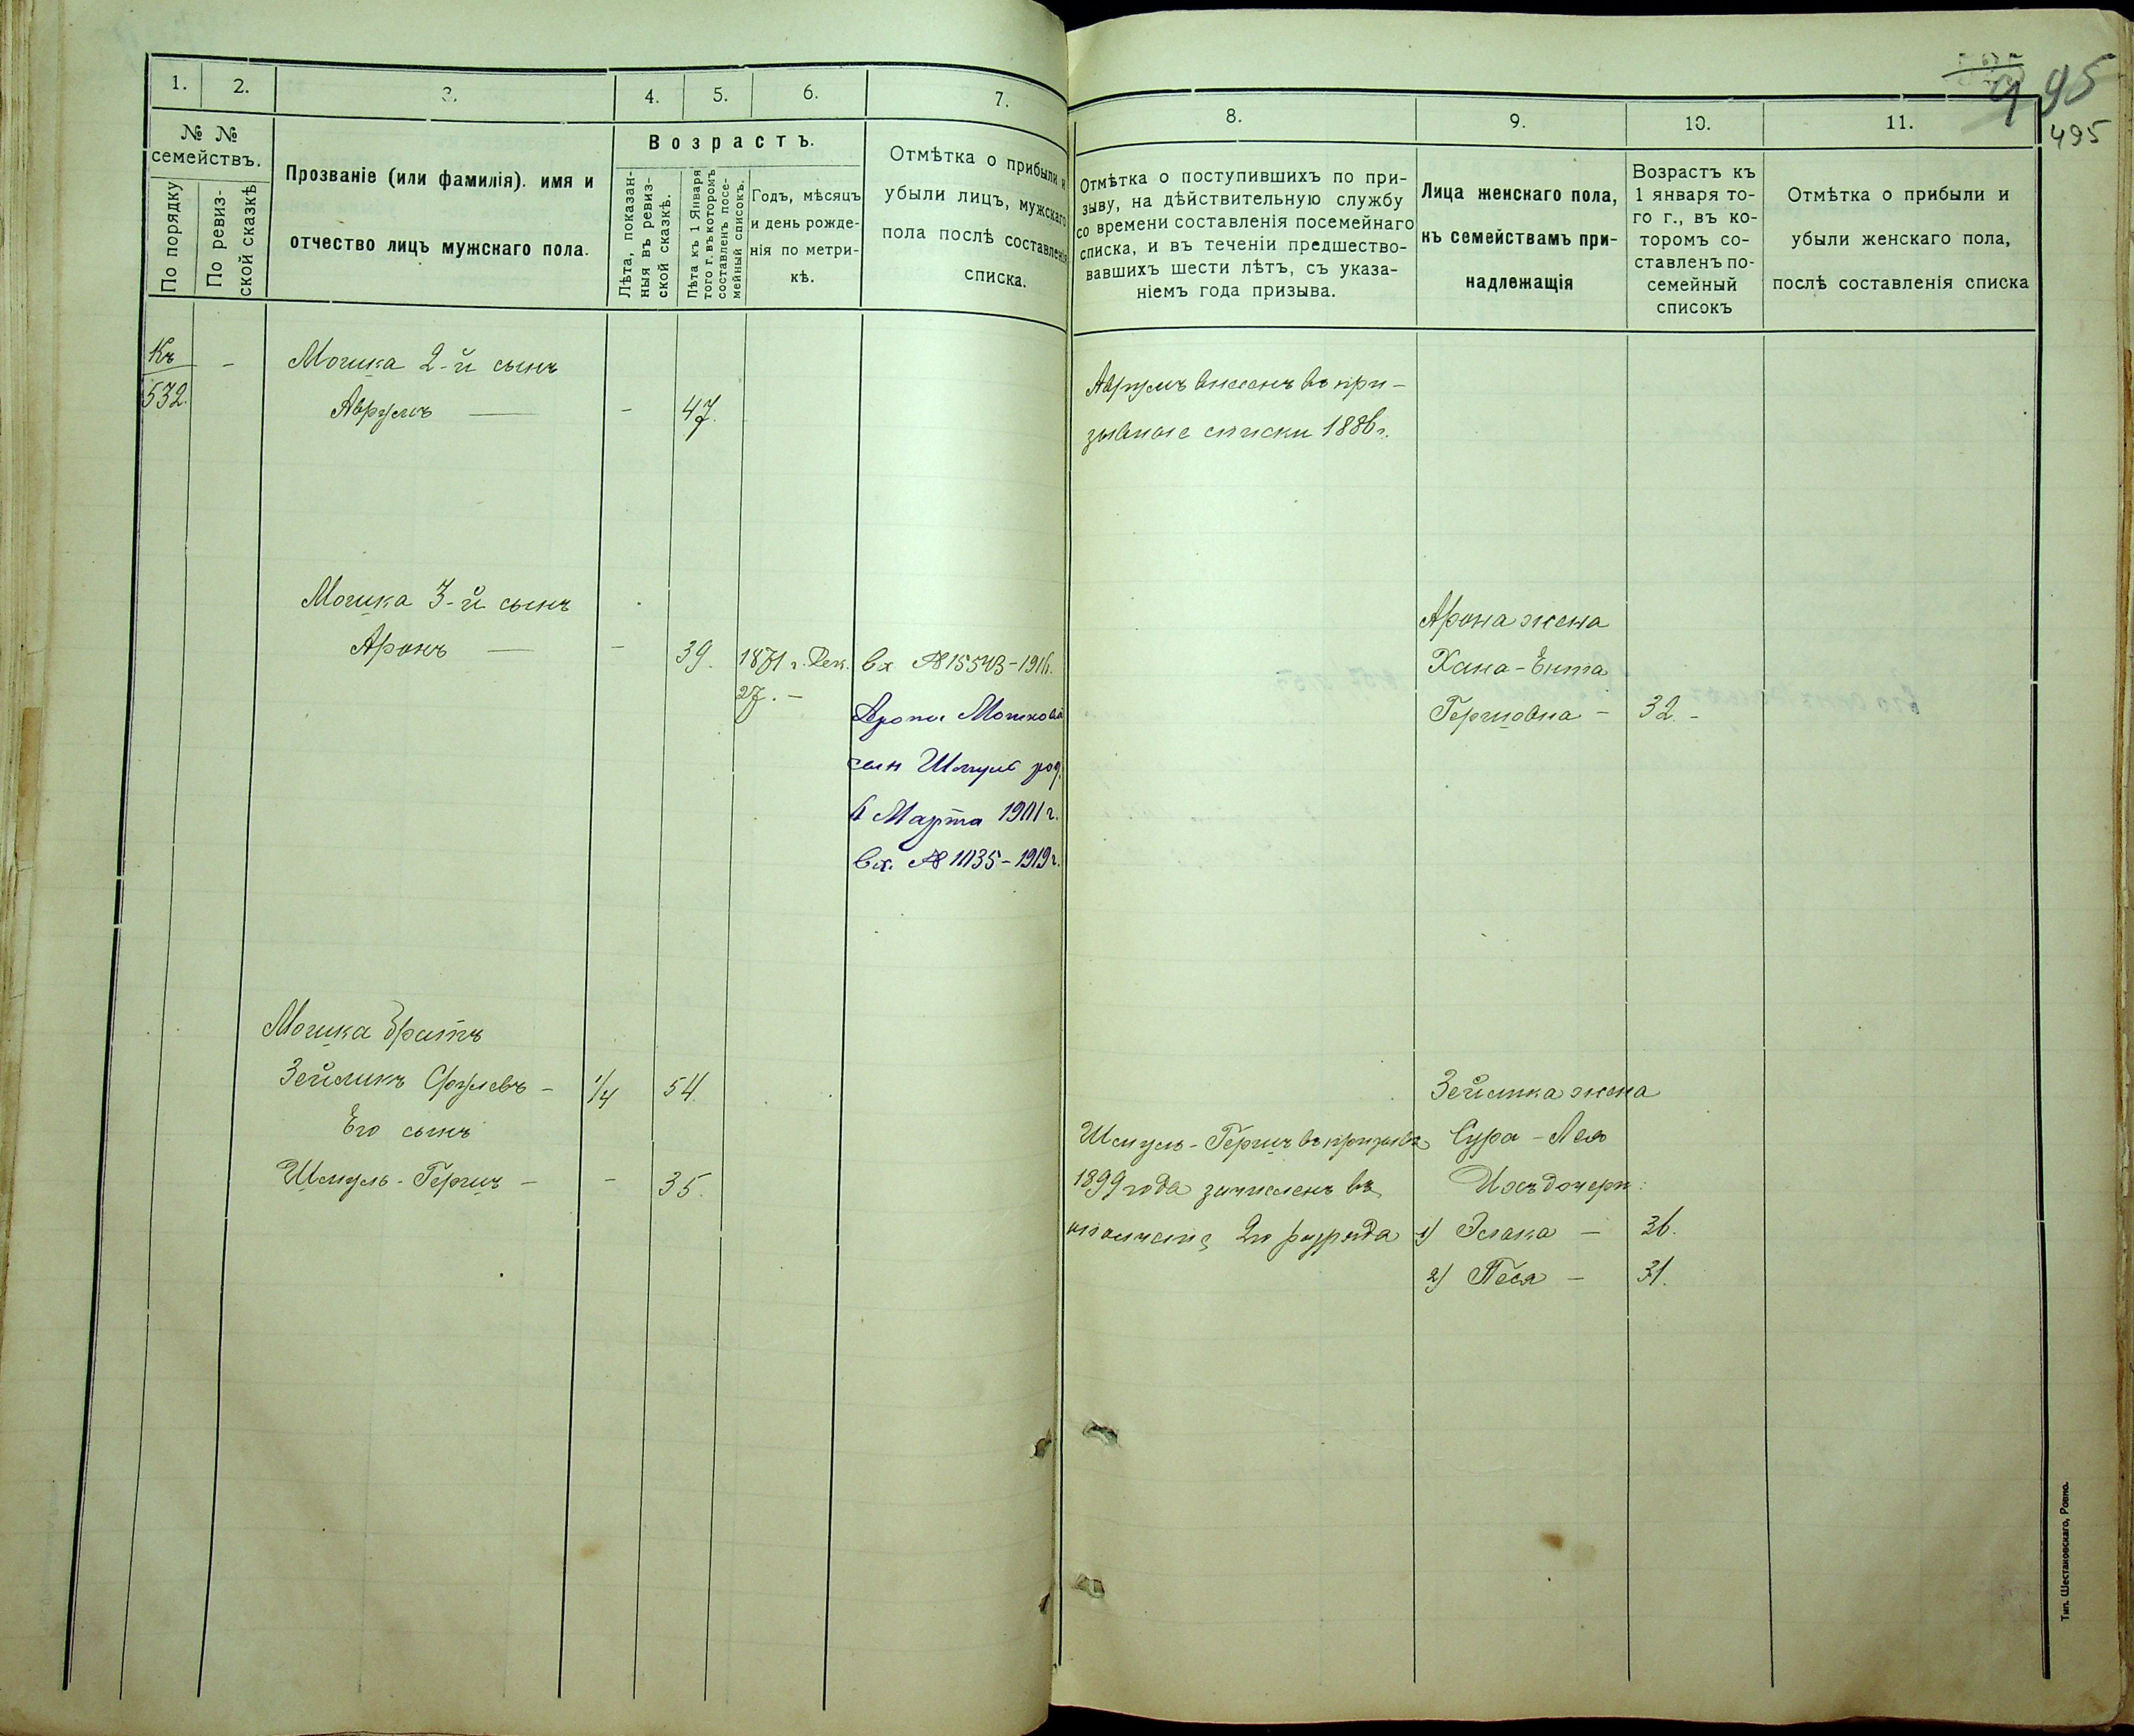 95
495
1. 2. 3. 4. 5. 6. 7.
№ №
семействъ.
По порядку
По ревиз-
ской сказкѣ
Прозваніе (или фамилія). имя и
отчество лицъ мужскаго пола.
Возрастъ.
Лѣта, показан-
ныя въ ревиз-
ской сказкѣ.
Лѣта къ 1 Января
того г. въ которомъ
составленъ посе-
мейный списокъ.
Годъ, мѣсяцъ
и день рожде-
нія по метри-
кѣ.
Отмѣтка о прибыли и
убыли лицъ, мужскаго
пола послѣ составленія
списка.
8. 9. 10. 11.
Отмѣтка о поступившихъ по при-
зыву, на дѣйствительную службу
со времени составленія посемейнаго
списка, и въ теченіи предшество-
вавшихъ шести лѣтъ, съ указа-
ніемъ года призыва.
Лица женскаго пола,
къ семействамъ при-
надлежащія
Возрастъ къ
1 января то-
го г., въ ко-
торомъ со-
ставленъ по-
семейный
списокъ
Отмѣтка о прибыли и
убыли женскаго пола,
послѣ составленія списка
Къ
532.
-
Мошка 2-й сынъ
Аврумъ — - 47.
Аврумъ внесенъ въ при-
зывные списки 1886 г.
Мошка 3-й сынъ
Аронъ — - 39. 1871 г. Дек.
27. -
вх № 15543-1916.
Арона Мошкова
сын Шмуль род.
Марта 1901 г.
вх. № 1135-1919 г.
Арона жена
Хана-Ента
Гершовна - 32. -
Мошка братъ
Зейликъ Сруlевъ - 1/4 54
Его сынъ
Шмуль-Гершъ - - 35.
Шмуль-Гершъ въ призывъ
1899 года зачисленъ въ
ополченіе 2го разряда
Зейлика жена
Сура-Лея
Ихъ дочери:
1) Злака - 36.
2) Песя - 31.
Тип. Шестаковскаго, Ровно.